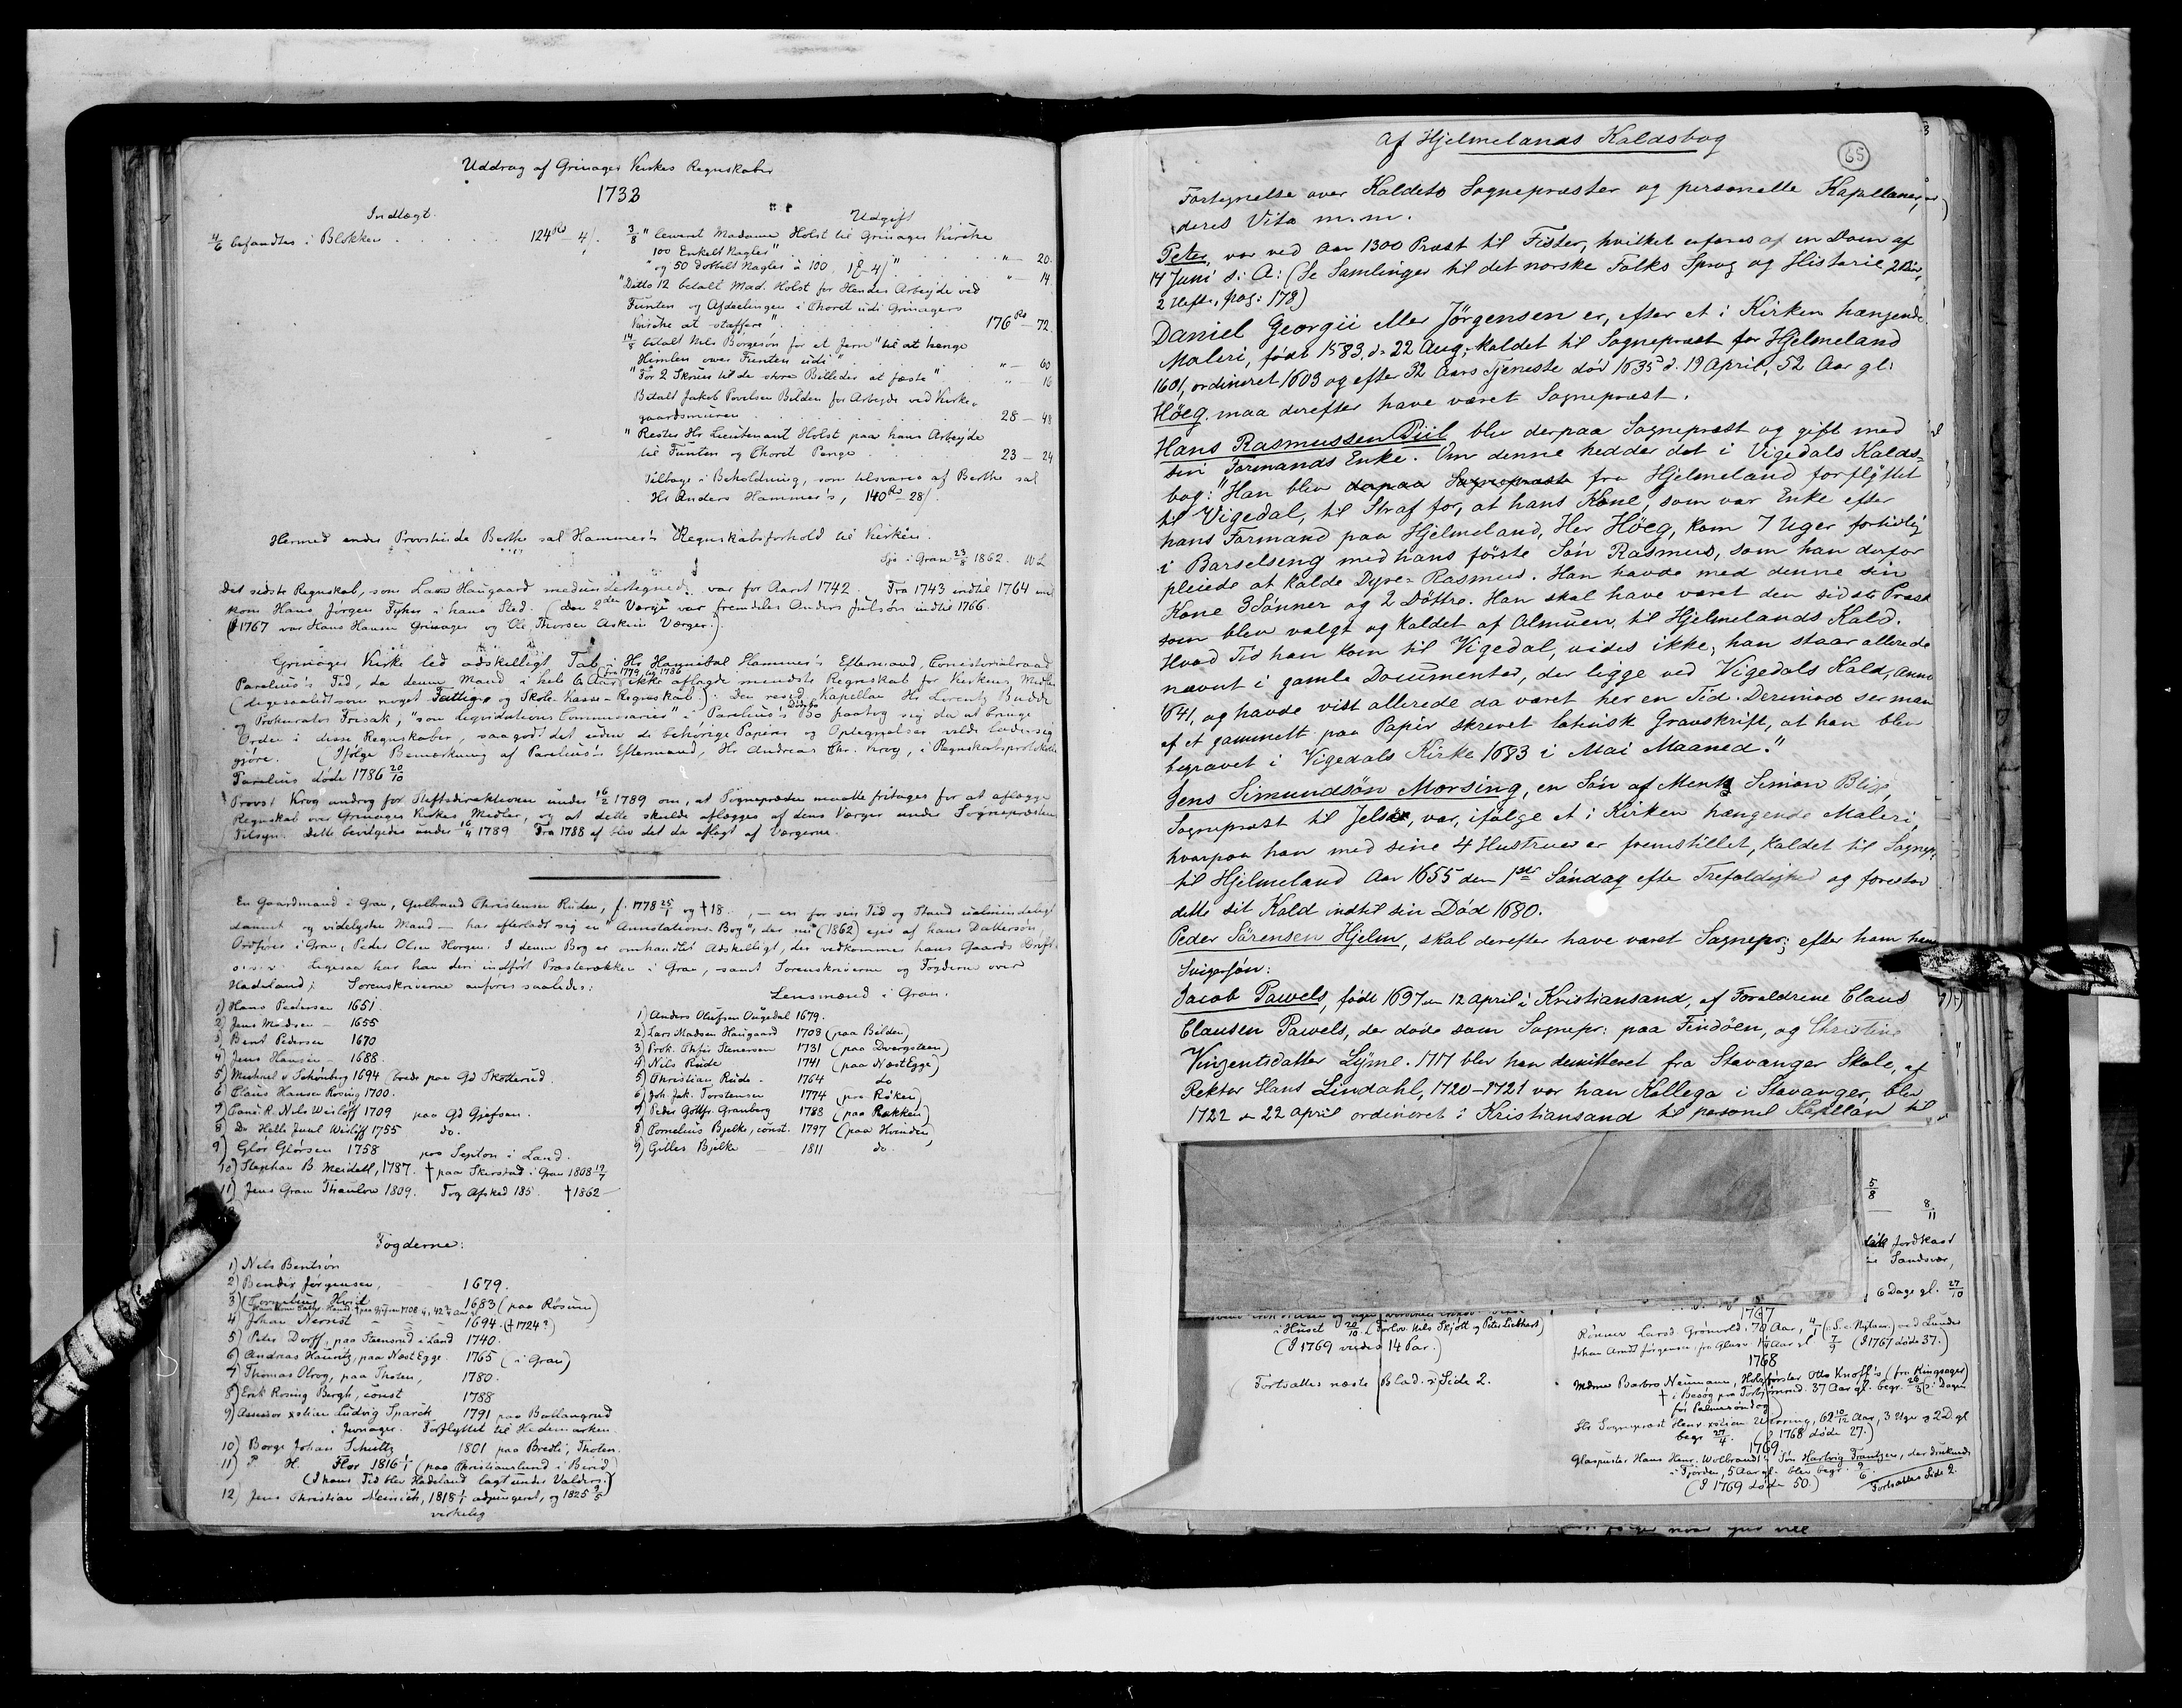 Uddrag af Grinager Kirkes Regnskaber
1733
Indlagt.
4/6 befandtes i Blokken . . . . . . 124 Rd – 4/.
Udgift
3/8 " leveret Madame Holst til Grinager Kirche
100 Enkelt Nagler" . . . . . " — 20.
" og 50 dobbelt Nagler à 100, " . . . . " — 14.
"Ditto 12 betalt Mad. Holst for Hendes Arbejde ved
Funten og Afdeelingen i Choret udi Grinagers
Kirche at staffere" . . . . . 176 Rd — 72.
14/8 betalt Nils Børgesøn for et Jern "til at hænge
Himlen over Funten udi" . . . . " — 60
"For 2 Skruer til de store Billeder at fæste" " — 16
Betalt Jakob Povelsen Bilden for Arbejde ved Kirke-
gaardsmuren . . . . . 28 — 48
" Rester Hr Lieutenant Holst paa hans Arbejde
til Funten og Choret Penge . . . 23 — 24
Tilbage i Beholdning, som tilsvares af Berthe sal
Hr Anders Hammer's, 140 Rd – 28/.
Hermed ender Provstinde Berthe sal Hammer's Regnskabsforhold til Kirken.
Sjo i Gran 23/8 1862. WL
Det sidste Regnskab, som Lars Haugaard medundertegned, var for Aaret 1742. Fra 1743 indtil 1764
kom Hans Jørgen Tyker i hans Sted. (den 2den Værge var fremdeles Anders Julsøn indtil 1766.
(I 1767 var Hans Hansen Grinager og Ole Thorsen Askim Værger.)
Grinager Kirke led adskilligt Tab i Hr Hannibal Hammer's Eftermand, Consistorialraad
fra 1779 til 1786
Parelius's Tid, da denne Mand i hele 6 Aar ikke aflagde mindste Regnskab for Kirkens Midler
(ligesaalidt som noget Fattig- og Skole-Kasse-Regnskab). Den resid. Kapellan Hr Lorentz Budde
og Prokurator Frisak, "som liqvidations Commissarier" i Parelius's Bo paatog sig da at bringe
Orden i disse Regnskaber, saagodt det uden de behørige Papirer og Optegnelser vilde lade sig
gjøre. (Ifølge Bemærkning af Parelius's Eftermand, Hr Andreas Chr. Krog, i Regnskabsprotokollen
Parelius døde 1786 20/10
Provst Krog androg for Stiftsdirektionen under 16/2 1789 om, at Sognepræsten maatte fritages for at aflægge
Regnskab over Grinager Kirkes Midler, og at dette skulde aflægges af dens Værger under Sognepræstens
Tilsyn. Dette bevilgedes under 16/4 1789 Fra 1788 af blev det da aflagt af Værgerne.
En Gaardmand i Gran, Gulbrand Christensen Ruden, f. 1778 25/1 og † 18 . , — en for sin Tid og Stand ualmindeligt
dannet og videlysten Mand — har efterladt sig en "Annotations-Bog", der nu (1862) ejes af hans Dattersøn,
Ordfører i Gran, Peder Olsen Horgen. I denne Bog er omhandlet Adskilligt, der vedkommer hans Gaards Drift
o.s.v. Ligesaa har han deri indført Præsterækken i Gran, samt Sorenskriverne og Fogderne over
Hadeland; Sorenskriverne anføres saaledes:
1) Hans Pedersen 1651.
2) Jens Madsen – 1655
3) Bent Pedersen 1670
4) Jens Hansen – 1688.
5) Michael v Schønberg 1694 (boede paa Gd Skotterud.
6) Claus Hansen Rosing 1700.
7) Cans. R. Nils Weisløff 1709 paa Gd Gjefsen.
8) Do Helle Juul Wisløff 1755 do.
9) Glør Glørsen 1758 paa Septon i Land.
10) Stephan B Meidell, 1787. † paa Skirstad i Gran 1808 19/7
11) Jens Gran Thaulow 1809. Tog Afsked 185 . †1862
Lensmænd i Gran.
1) Anders Olufsen Ougedal 1679.
2) Lars Madsen Haugaard 1708 (paa Bilden)
3) Prok. Chfer Stenersen 1731 (paa Dvergsteen)
4) Nils Rude 1741 (paa NæstEgge)
5) Christian Rude – 1764 do
6) Joh. Jak. Torstensen 1774 (paa Røken)
7) Peder Gottfr. Granberg 1788 (paa Rækken)
8) Cornelius Bjelke, const. 1797 (paa Hvinden)
9) Gilles Bjelke — 1811 do.
Fogderne:
1) Nels Bentsøn
2) Bendix Jørgensen, 1679.
3) Cornelius Hvid 1683 (paa Røsum)
4) Johan Nernst 1694. (†1724?)
5) Peter Dorff, paa Steensrud i Land 1740.
6) Andreas Hauritz, paa Næst Egge 1765 (i Gran)
7) Thomas Olrog, paa Thoten, 1780.
8) Erik Rosing Bergh, const 1788
9) Assessor xstian Ludvig Sparch 1791 paa Ballangrud
i Jevnager. Forflyttet til Hedemarken.
10) Børge Johan Schultz 1801 paa Bredli, Thoten.
11) P. H. Flor 1816 1/1 (paa Christianslund i Birid)
(I hans Tid blev Hadeland lagt under Valders.)
12) Jens Christian Meinich, 1818 1/1 adjungeret, og 1825 9/5
virkelig
Af Hjelmelands Kaldsbog
65
Fortegnelse over Kaldets Sognepræster og personelle Kapellaner,
deres Vita m.m.
Peter, var ved Aar 1300 Præst til Fister, hvilket erfares af en Dom af
14 Juni s: A: (Se Samlinger til det norske Folks Sprog og Historie, 2 Bd,
2 Hefte, pag: 178)
Daniel Georgii eller Jörgensen er, efter et i Kirken hængende
Maleri, född 1583, d. 22 Aug., kaldet til Sognepræst for Hjelmeland
1601, ordineret 1603 og efter 32 Aars Tjeneste död 1635 d. 19 April, 52 Aar gl:
Höeg. maa derefter have været Sognepræst.
Hans Rasmussen Piil blev derpaa Sognepræst og gift med
sin Formands Enke. Om denne hedder det i Vigedals Kalds-
bog: "Han blev derpaa Sognepræst fra Hjelmeland forflyttet
til Vigedal, til Straf for, at hans Kone, som var Enke efter
hans Formand paa Hjelmeland, Her Höeg, kom 7 Uger fortidlig
i Barselseng med hans förste Sön Rasmus, som han derfor
pleiede at kalde Dyre-Rasmus. Han havde med denne sin
Kone 3 Sönner og 2 Döttre. Han skal have været den sidste Præst
som blev valgt og kaldet af Almuen, til Hjelmelands Kald.
Hvad Tid han kom til Vigedal, vides ikke; han staar allerede
nævnt i gamle Documenter, der ligge ved Vigedals Kald, Anno
1641, og havde vist allerede da været her en Tid. Derimod ser man
af et gammelt paa Papir skrevet latinsk Gravskrift, at han blev
begravet i Vigedals Kirke 1683 i Mai Maaned."
Jens Simundsön Morsing, en Sön af Simon Blix,
Sognepræst til Jelsöe, var, ifölge et i Kirken hængende Maleri,
hvorpaa han med sine 4 Hustruer er fremstillet, kaldet til Sognepr.
til Hjelmeland Aar 1655 den 1ste Söndag efter Trefoldighed og forestod
dette sit Kald indtil sin Död 1680.
Peder Sörensen Hjelm, skal derefter have været Sognepr; efter ham hans
Svigersön:
Jacob Pawels, födt 1697 den 12 April i Kristiansand, af Forældrene Claus
Clausen Pawels, der döde som Sognepr: paa Findöen, og Christine
Vinzentsdatter Lyme. 1717 blev han demitteret fra Stavanger Skole, af
Rektor Hans Lindahl, 1720–1721 var han Kollega i Stavanger, blev
1722 d. 22 April ordineret i Kristiansand til personel Kapellan til
5/8
8/11
fordkast
Sandsvær,
6 Dage gl. 27/10
i Huset 20/10. (Forlov. Nils Skjøtt og Peter Liebhert)
(I 1769 viedes 14 Par.)
Fortsættes næste Blad. Side 2.
1767
Rønner Larsd. Grönvold. 70 Aar, ved Lunder
Johan Arndt Jörgensen fra Glasv. 1¼ Aar gl 7/9 (I 1767 døde 37.)
1768
Mdme Barbro Neumann, Holzförster Otto Knoff's (fra Ringsager)
† i Besøg paa 37 Aar gl. begr. 26/3 Dagen
før Palmesøndag)
Hr Sognepræst Henr. xstian Worning, 62 10/12 Aar, 3 Uger og 2 D. gl
begr 27/4. (I 1768 døde 27.)
1769
Glaspuster Hans Henr. Wolbrandt's Søn Hartvig Frantzen, der druknede
i Fjorden, 5 Aar gl. blev begr. 9/6.
(I 1769 døde 50.) Fortsættes Side 2.